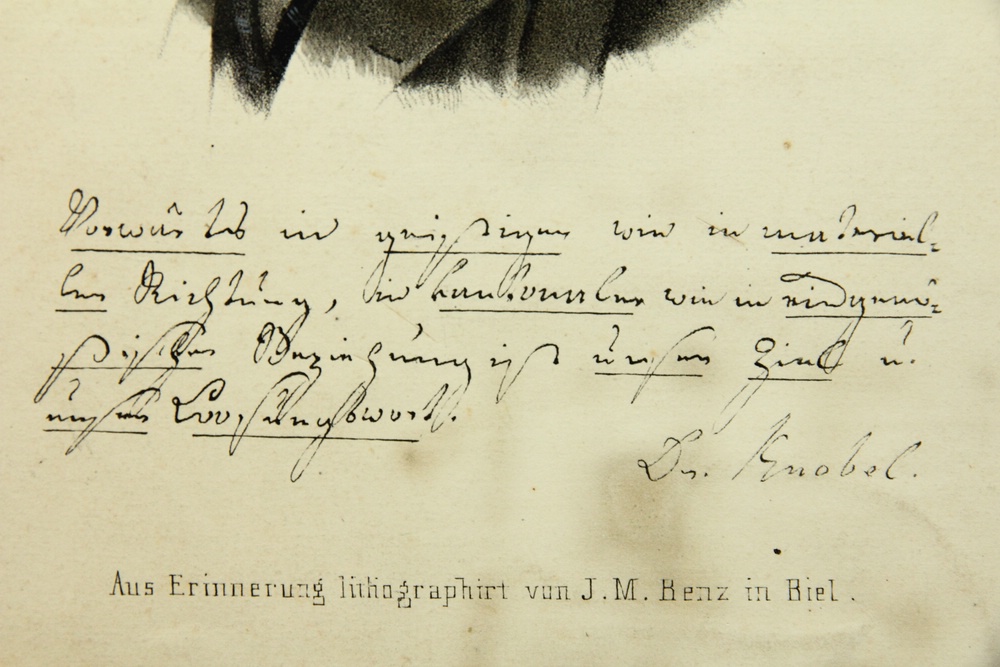 Vorwärts in geistiger wie in materiel-
ler Richtung, in kantonaler wie in eidgenö-
ßischer Beziehung ist unser Ziel u.
unser Loosungswort.
Dr. Knobel.
Aus Erinnerung lithographirt von J. M. Benz in Biel.